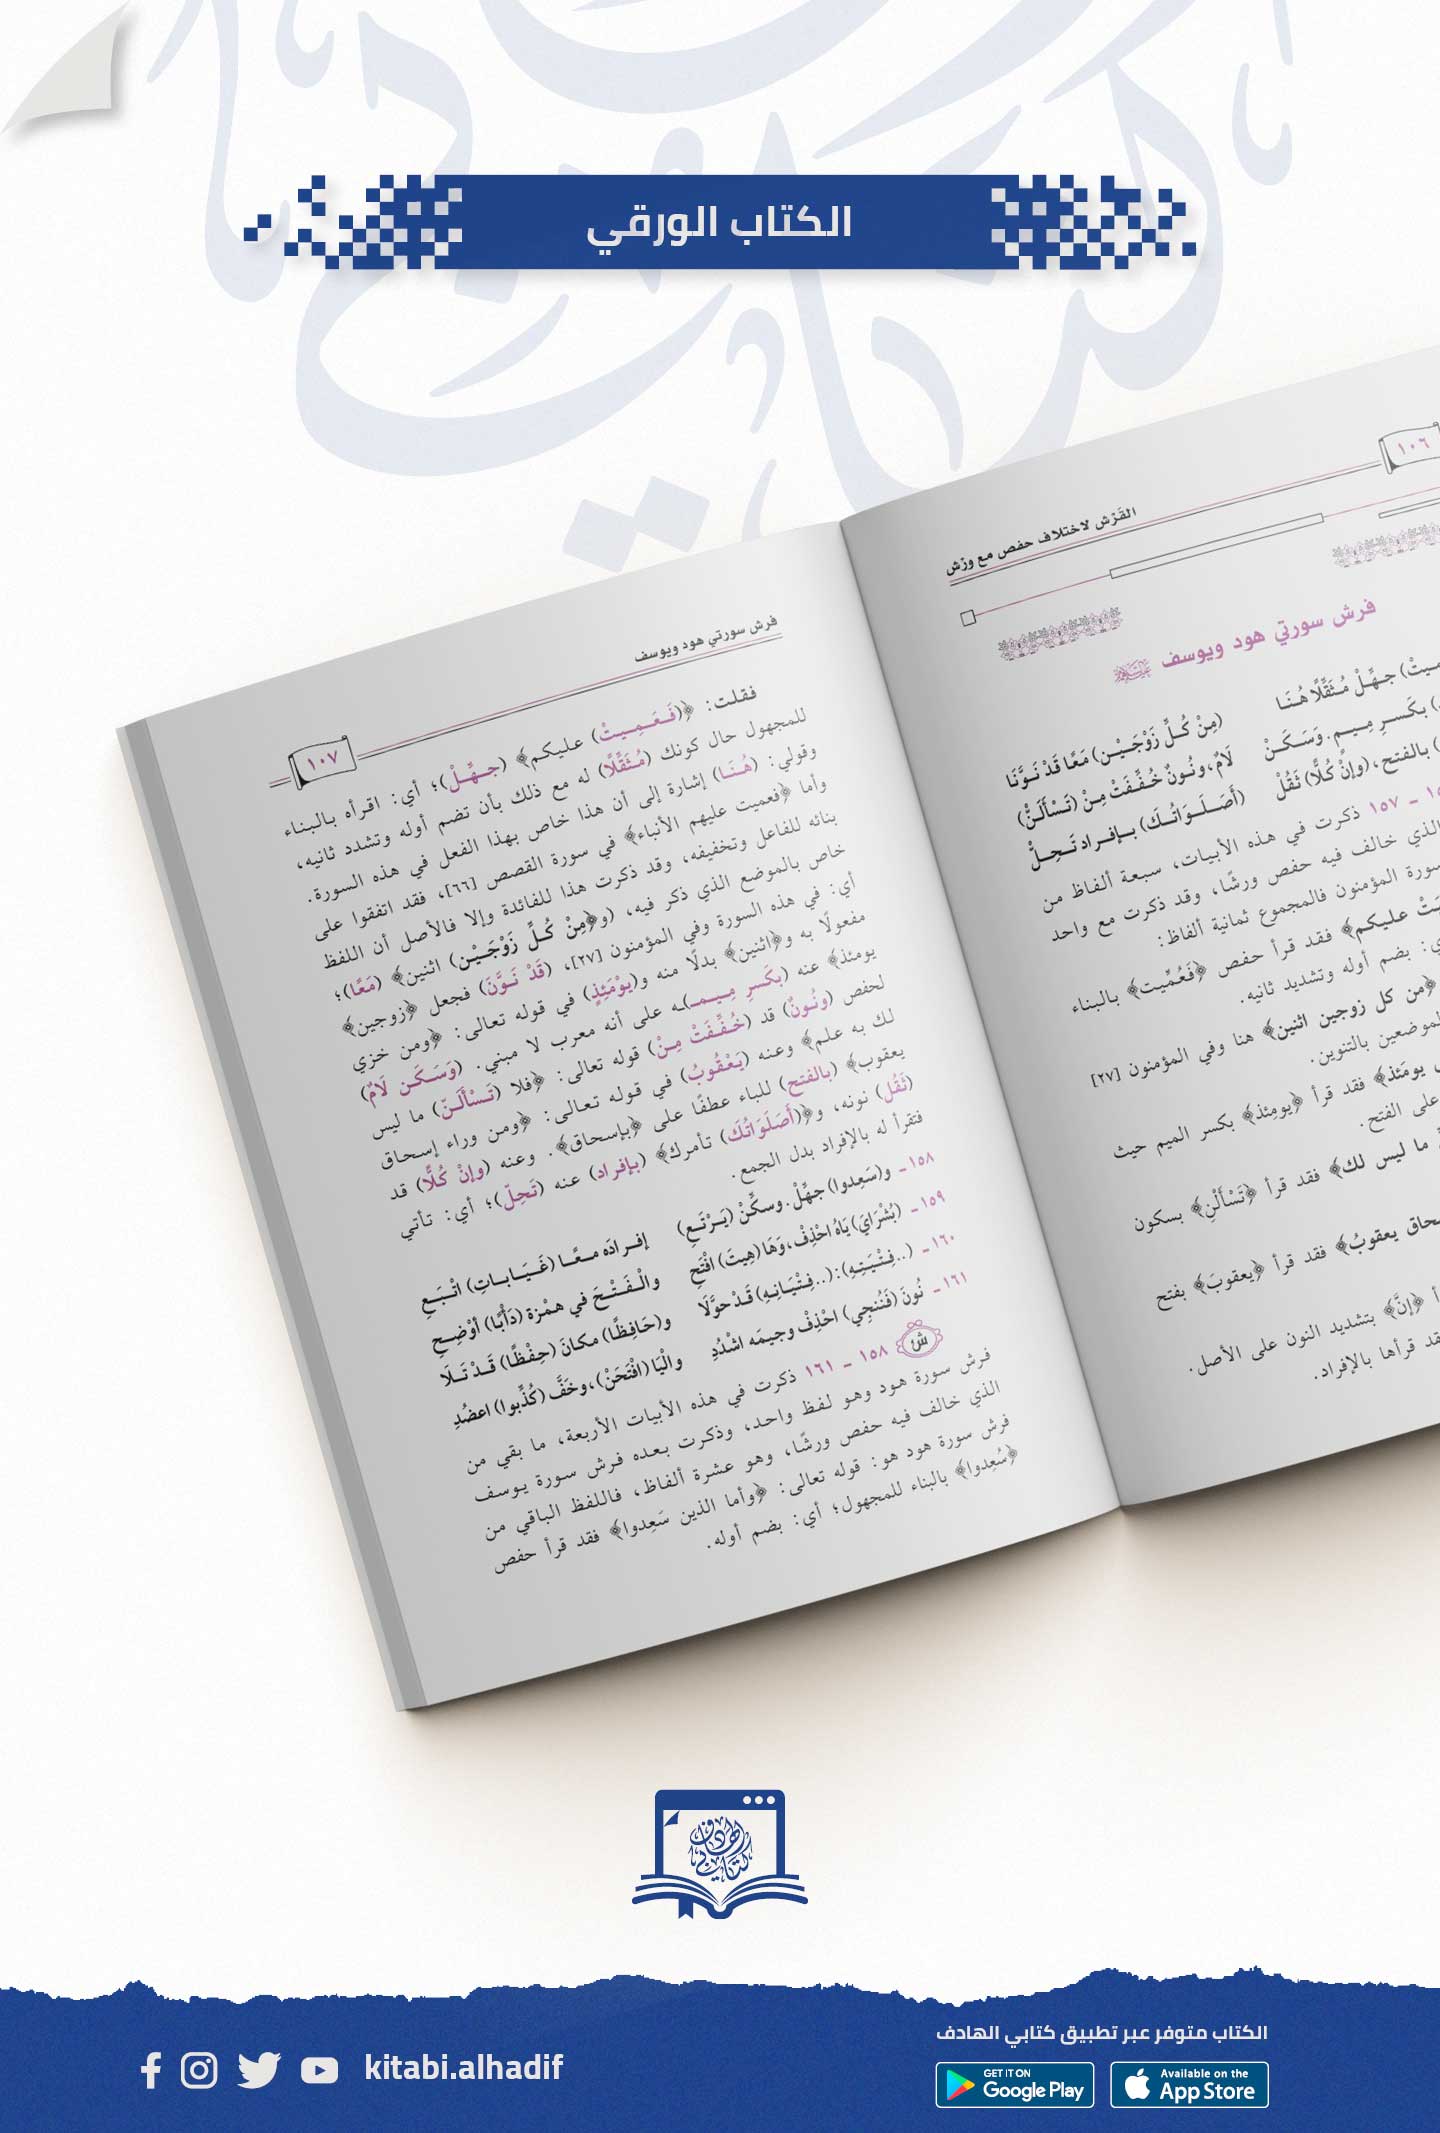 الكتاب الورقي
١٠٦
الفَرْش لاختلاف حفص مع ورْش
فرش سورتي هود ويوسف
ـمِيتْ) جهِّلْ مُثَقِّلًا هُنَا (مِنْ كُلِّ زَوْجَيْنِ) مَعًا قَدْ نَوَّنَا
) بكَسرِ مِيمٍ. وَسَكَنْ لَامٌ، ونُونٌ خُفِّفَتْ مِنْ (تَسْأَلَنّْ)
) بالفتح، (وإنْ كُلًّا) ثَقُلْ (أَصَلَوَاتُكَ) بإفراد تَحِلّْ
ـ ١٥٧ ذكرت في هذه الأبيات، سبعة ألفاظ من
الذي خالف فيه حفص ورشًا، وقد ذكرت مع واحد
سورة المؤمنون فالمجموع ثمانية ألفاظ:
عليكم﴾ فقد قرأ حفص ﴿فَعُمِّيت﴾ بالبناء
ي: بضم أوله وتشديد ثانيه.
﴿من كل زوجين اثنين﴾ هنا وفي المؤمنون [٢٧]
لموضعين بالتنوين.
يومَئذ﴾ فقد قرأ ﴿يومِئذ﴾ بكسر الميم حيث
على الفتح.
ما ليس لك﴾ فقد قرأ ﴿تَسْأَلْنِ﴾ بسكون
ـحاق يعقوبُ﴾ فقد قرأ ﴿يعقوبَ﴾ بفتح
﴿إنَّ﴾ بتشديد النون على الأصل.
ـقد قرأها بالإفراد.
فرش سورتي هود ويوسف
١٠٧
فقلت: ﴿(فَعَمِيتْ) عليكم﴾ (جهِّلْ)؛ أي: اقرأه بالبناء
للمجهول حال كونك (مُثَقِّلًا) له مع ذلك بأن تضم أوله وتشدد ثانيه،
وقولي: (هُنَا) إشارة إلى أن هذا خاص بهذا الفعل في هذه السورة.
وأما ﴿فعميت عليهم الأنباء﴾ في سورة القصص [٦٦]، فقد اتفقوا على
بنائه للفاعل وتخفيفه، وقد ذكرت هذا للفائدة وإلا فالأصل أن اللفظ
خاص بالموضع الذي ذكر فيه، (و﴿مِنْ كُلِّ زَوْجَيْنِ) اثنين﴾ (مَعًا)؛
أي: في هذه السورة وفي المؤمنون [٢٧]، (قَدْ نَوَّنَ) فجعل ﴿زوجين﴾
مفعولًا به و﴿اثنين﴾ بدلًا منه و(يوْمَئِذٍ) في قوله تعالى: ﴿ومن خزي
يومئذ﴾ عنه (بكَسرِ مِيمـ)ـه على أنه معرب لا مبني. (وَسَكَن لَامٌ)
لحفص (ونُونٌ) قد (خُفِّفَتْ مِنْ) قوله تعالى: ﴿فلا (تَسْأَلَنّ) ما ليس
لك به علم﴾ وعنه (يَعْقُوبُ) في قوله تعالى: ﴿ومن وراء إسحاق
يعقوب﴾ (بالفتح) للباء عطفًا على ﴿بإسحاق﴾. وعنه (وإنْ كُلًّا) قد
(ثَقُل) نونه، و﴿(أَصَلَوَاتُكَ) تأمرك﴾ (بإفراد) عنه (تَحِلّ)؛ أي: تأتي
فتقرأ له بالإفراد بدل الجمع.
١٥٨ـ و(سَعِدوا) جهِّلْ. وسكِّنْ (يَرْتَعِ) إفرادَه معًا (غَيَابَاتِ) اتْبَعِ
١٥٩ـ (بُشْرَايَ) يَاهُ احْذِفْ، وَهَا (هِيتَ) افْتَحِ والْفَتْحَ في همْزة (دَأْبًا) أوْضِحِ
١٦٠ـ (..فِتْيَتِهِ): (..فِتْيَانِهِ) قَدْ حوَّلَا و(حَافِظًا) مكانَ (حِفْظًا) قَدْ تَلَا
١٦١ـ نُونَ (فَنُنجِي) احْذِفْ وجيمَه اشْدُدِ والْيَا (افْتَحَنْ)، وخَفَّ (كُذِّبوا) اعضُدِ
ش ١٥٨ ـ ١٦١ ذكرت في هذه الأبيات الأربعة، ما بقي من
فرش سورة هود وهو لفظ واحد، وذكرت بعده فرش سورة يوسف
الذي خالف فيه حفص ورشًا، وهو عشرة ألفاظ، فاللفظ الباقي من
فرش سورة هود هو: قوله تعالى: ﴿وأما الذين سَعِدوا﴾ فقد قرأ حفص
﴿سُعِدوا﴾ بالبناء للمجهول؛ أي: بضم أوله.
كتابي الهادف
الكتاب متوفر عبر تطبيق كتابي الهادف
kitabi.alhadif
GET IT ON
Google Play
Available on the
App Store